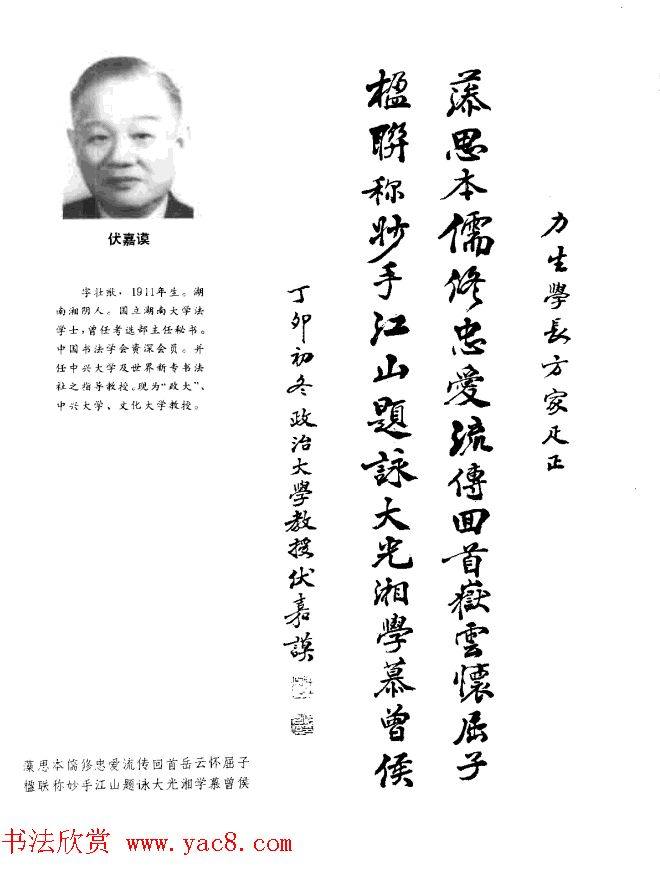 力生學長方家疋正
藻思本儒修忠愛流傳回首嶽雲懷屈子
楹聯称妙手江山題詠大光湘學慕曾侯
丁卯初冬政治大學教授伏嘉謨
伏嘉谟
字壮猷,1911年生。湖
南湘阴人。国立湖南大学法
学士,曾任考选部主任秘书。
中国书法学会资深会员。并
任中兴大学及世界新专书法
社之指导教授。现为“政大”、
中兴大学、文化大学教授。
藻思本儒修忠爱流传回首岳云怀屈子
楹联称妙手江山题咏大光湘学慕曾侯
书法欣赏 www.yac8.com